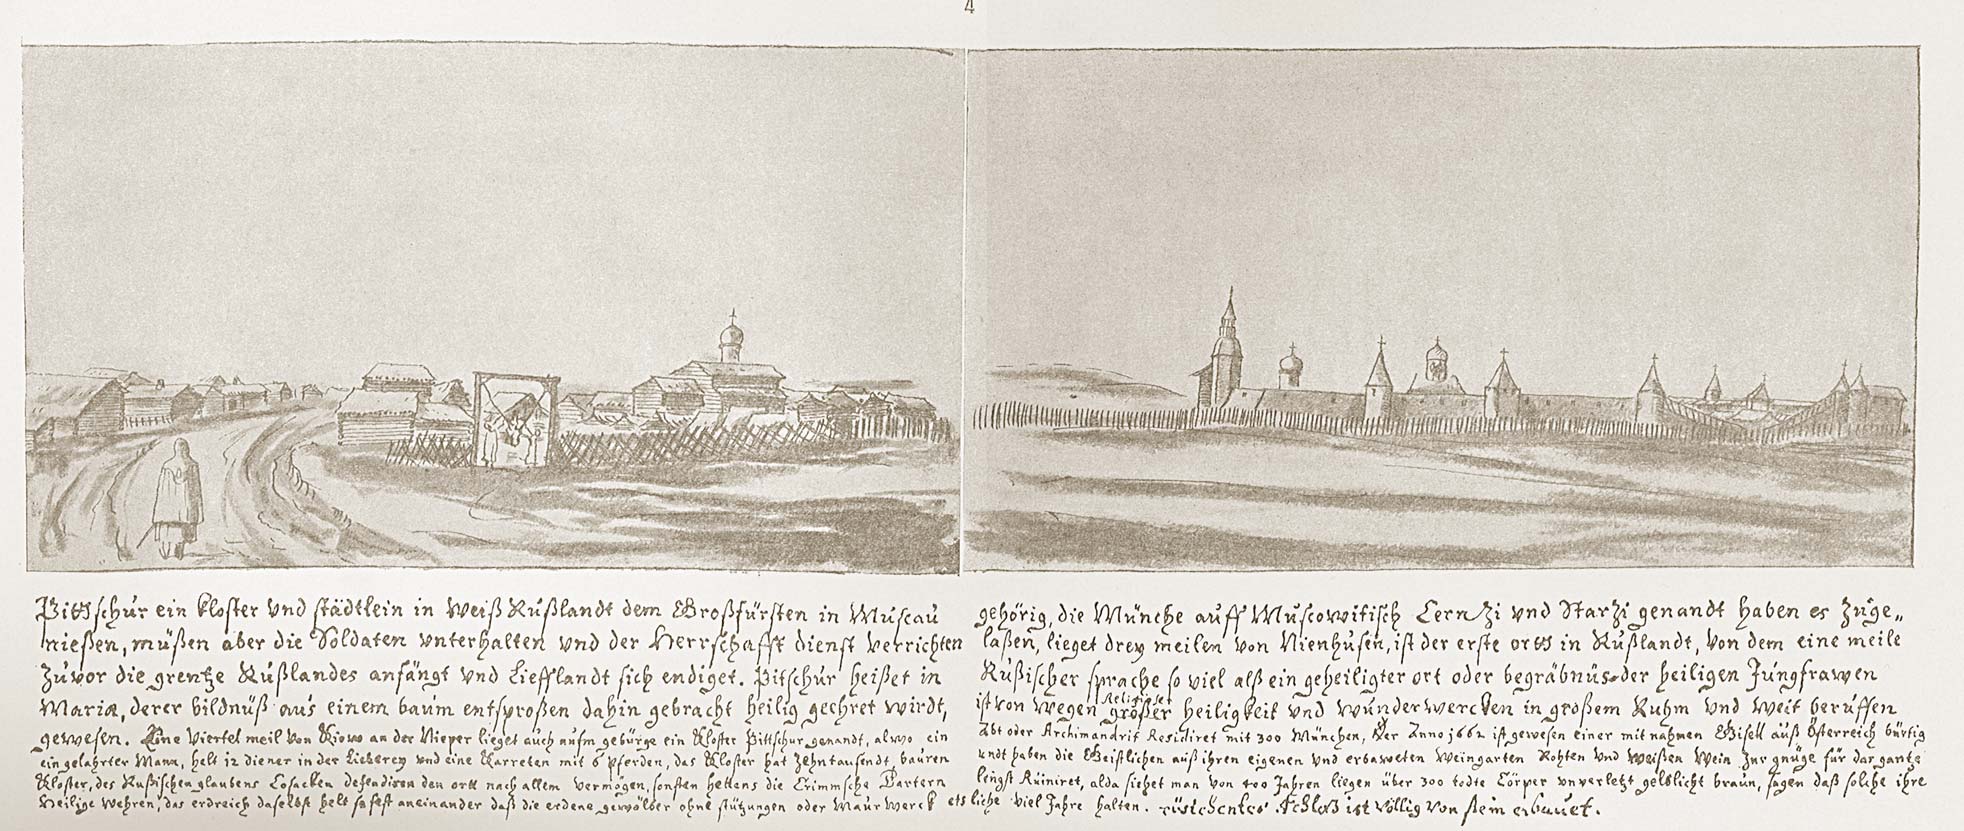 4
Pittschur ein kloster vnd städtlein in Weiß Rußlandt dem Großfürsten in Muscau gehörig, die Münche auff Muscowitisch Cernzi vnd Starzi genandt haben es Zuge„
nießen, müßen aber die Soldaten vnterhalten vnd der Herrschafft dienst verrichten laßen, lieget drey meilen von Nienhusen, ist der erste orth in Rußlandt, von dem eine meile
Zuvor die grentze Rußlandes anfängt vnd Liefflandt sich endiget. Pitschur heißet in Rußischer sprache so viel alß ein geheiligter ort oder begräbnüs der heiligen Jungfrawen
Mariæ, derer bildnüß aus einem baum entsproßen dahin gebracht heilig geehret wirdt, ist von wegen großer Religioses heiligkeit vnd wunderwercken in großem Ruhm vnd weit beruffen
gewesen. Eine Viertel meil von Kiow an der Nieper lieget auch aufm gebürge ein Kloster Pittschur genandt, alwo ein Abt oder Archimandrit Residiret mit 300 München, Der Anno 1662 ist gewesen einer mit nahmen Gisell auß Österreich bürtig
ein gelahrter Mann, helt 12 diener in der Lieberey vnd eine Karreten mit 6 pferden, das Kloster hat Zehntausendt bauren vndt haben die Geistlichen auß ihren eigenen vnd erbaweten Weingarten Rohten vnd Weißen Wein zur gnüge für das gantze
Kloster, des Rußischen glaubens Cosacken defendiren den ort nach allem vermögen, sonsten hettens die Crimmsche Tartern lengst Ruiniret, alda siehet man von 400 Jahren liegen über 300 todte Cörper unverletzt gelblicht braun, sagen daß solche ihre
Heilige wehren, das erdreich daselbst helt so fest aneinander daß die erdene gewölber ohne stützungen oder Maurwerck etsliche viel Jahre halten. Schloß ist völlig von stein erbauet.